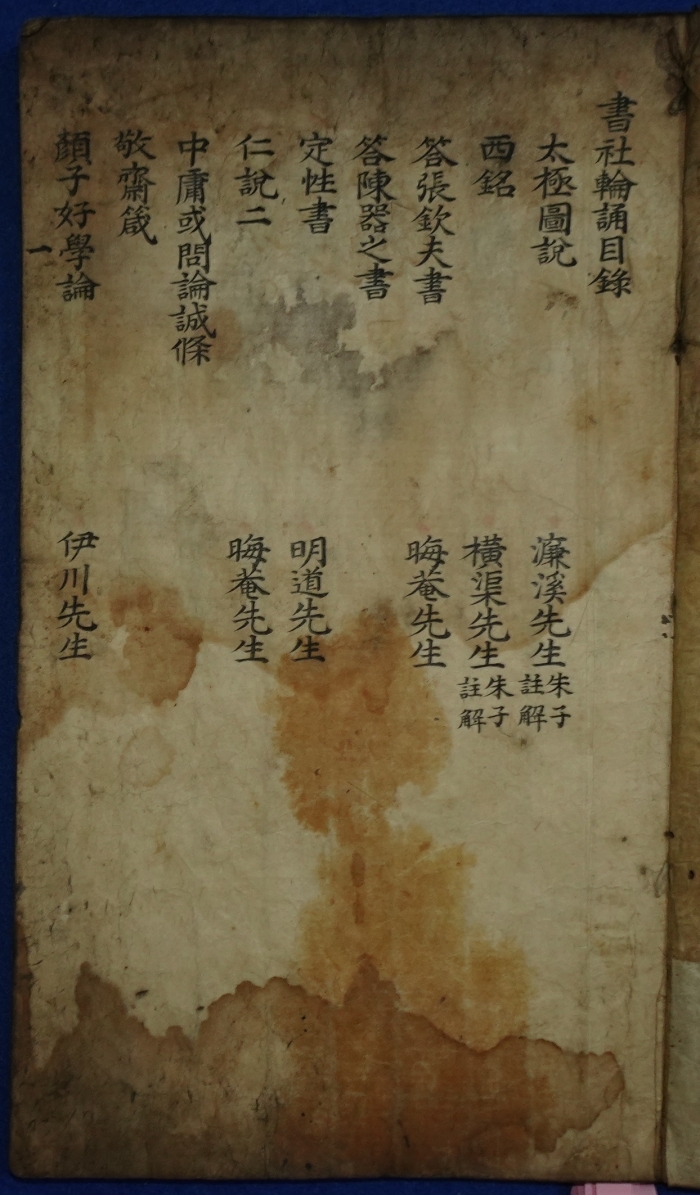 書社輪誦目錄
太極圖說 濂溪先生 朱子註解
西銘 橫渠先生 朱子註解
答張欽夫書 晦菴先生
答陳器之書
定性書 明道先生
仁說二 晦菴先生
中庸或問論誠條
敬齋箴
顏子好學論 伊川先生
一